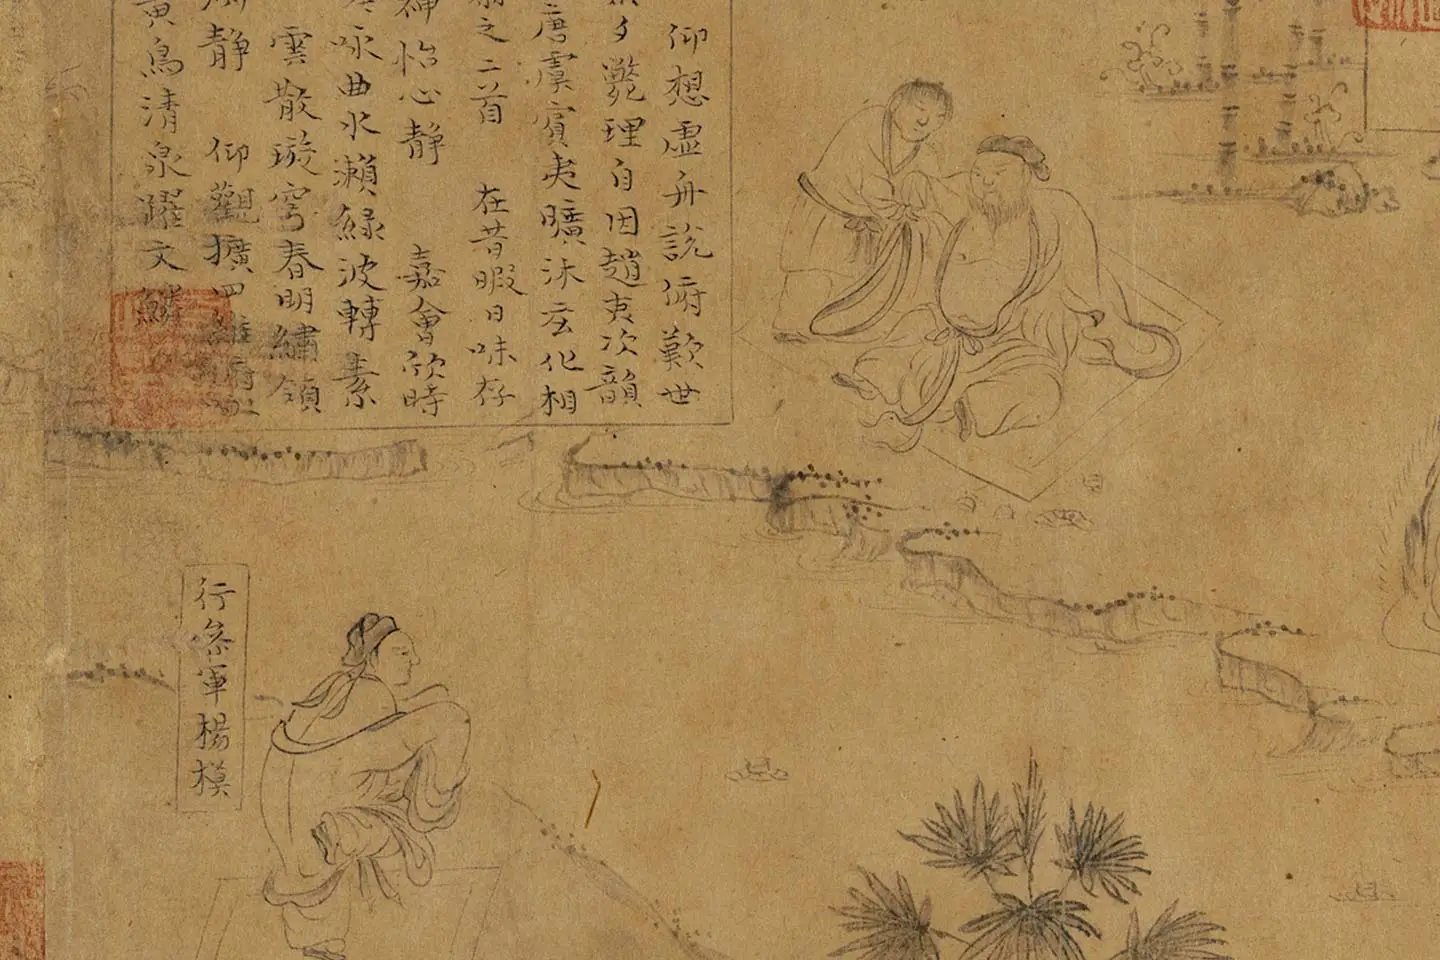 仰想虛舟說俯歎世
夕斃理自因趙夷次韻
唐虞賓夷曠沐玄化相
之二首 在昔暇日味存
神怡心靜 嘉會欣時
詠曲水瀨綠波轉素
雲散璇穹春明繡領
靜 仰觀擴四維俯
鳥清泉躍文鱗
行參軍楊模